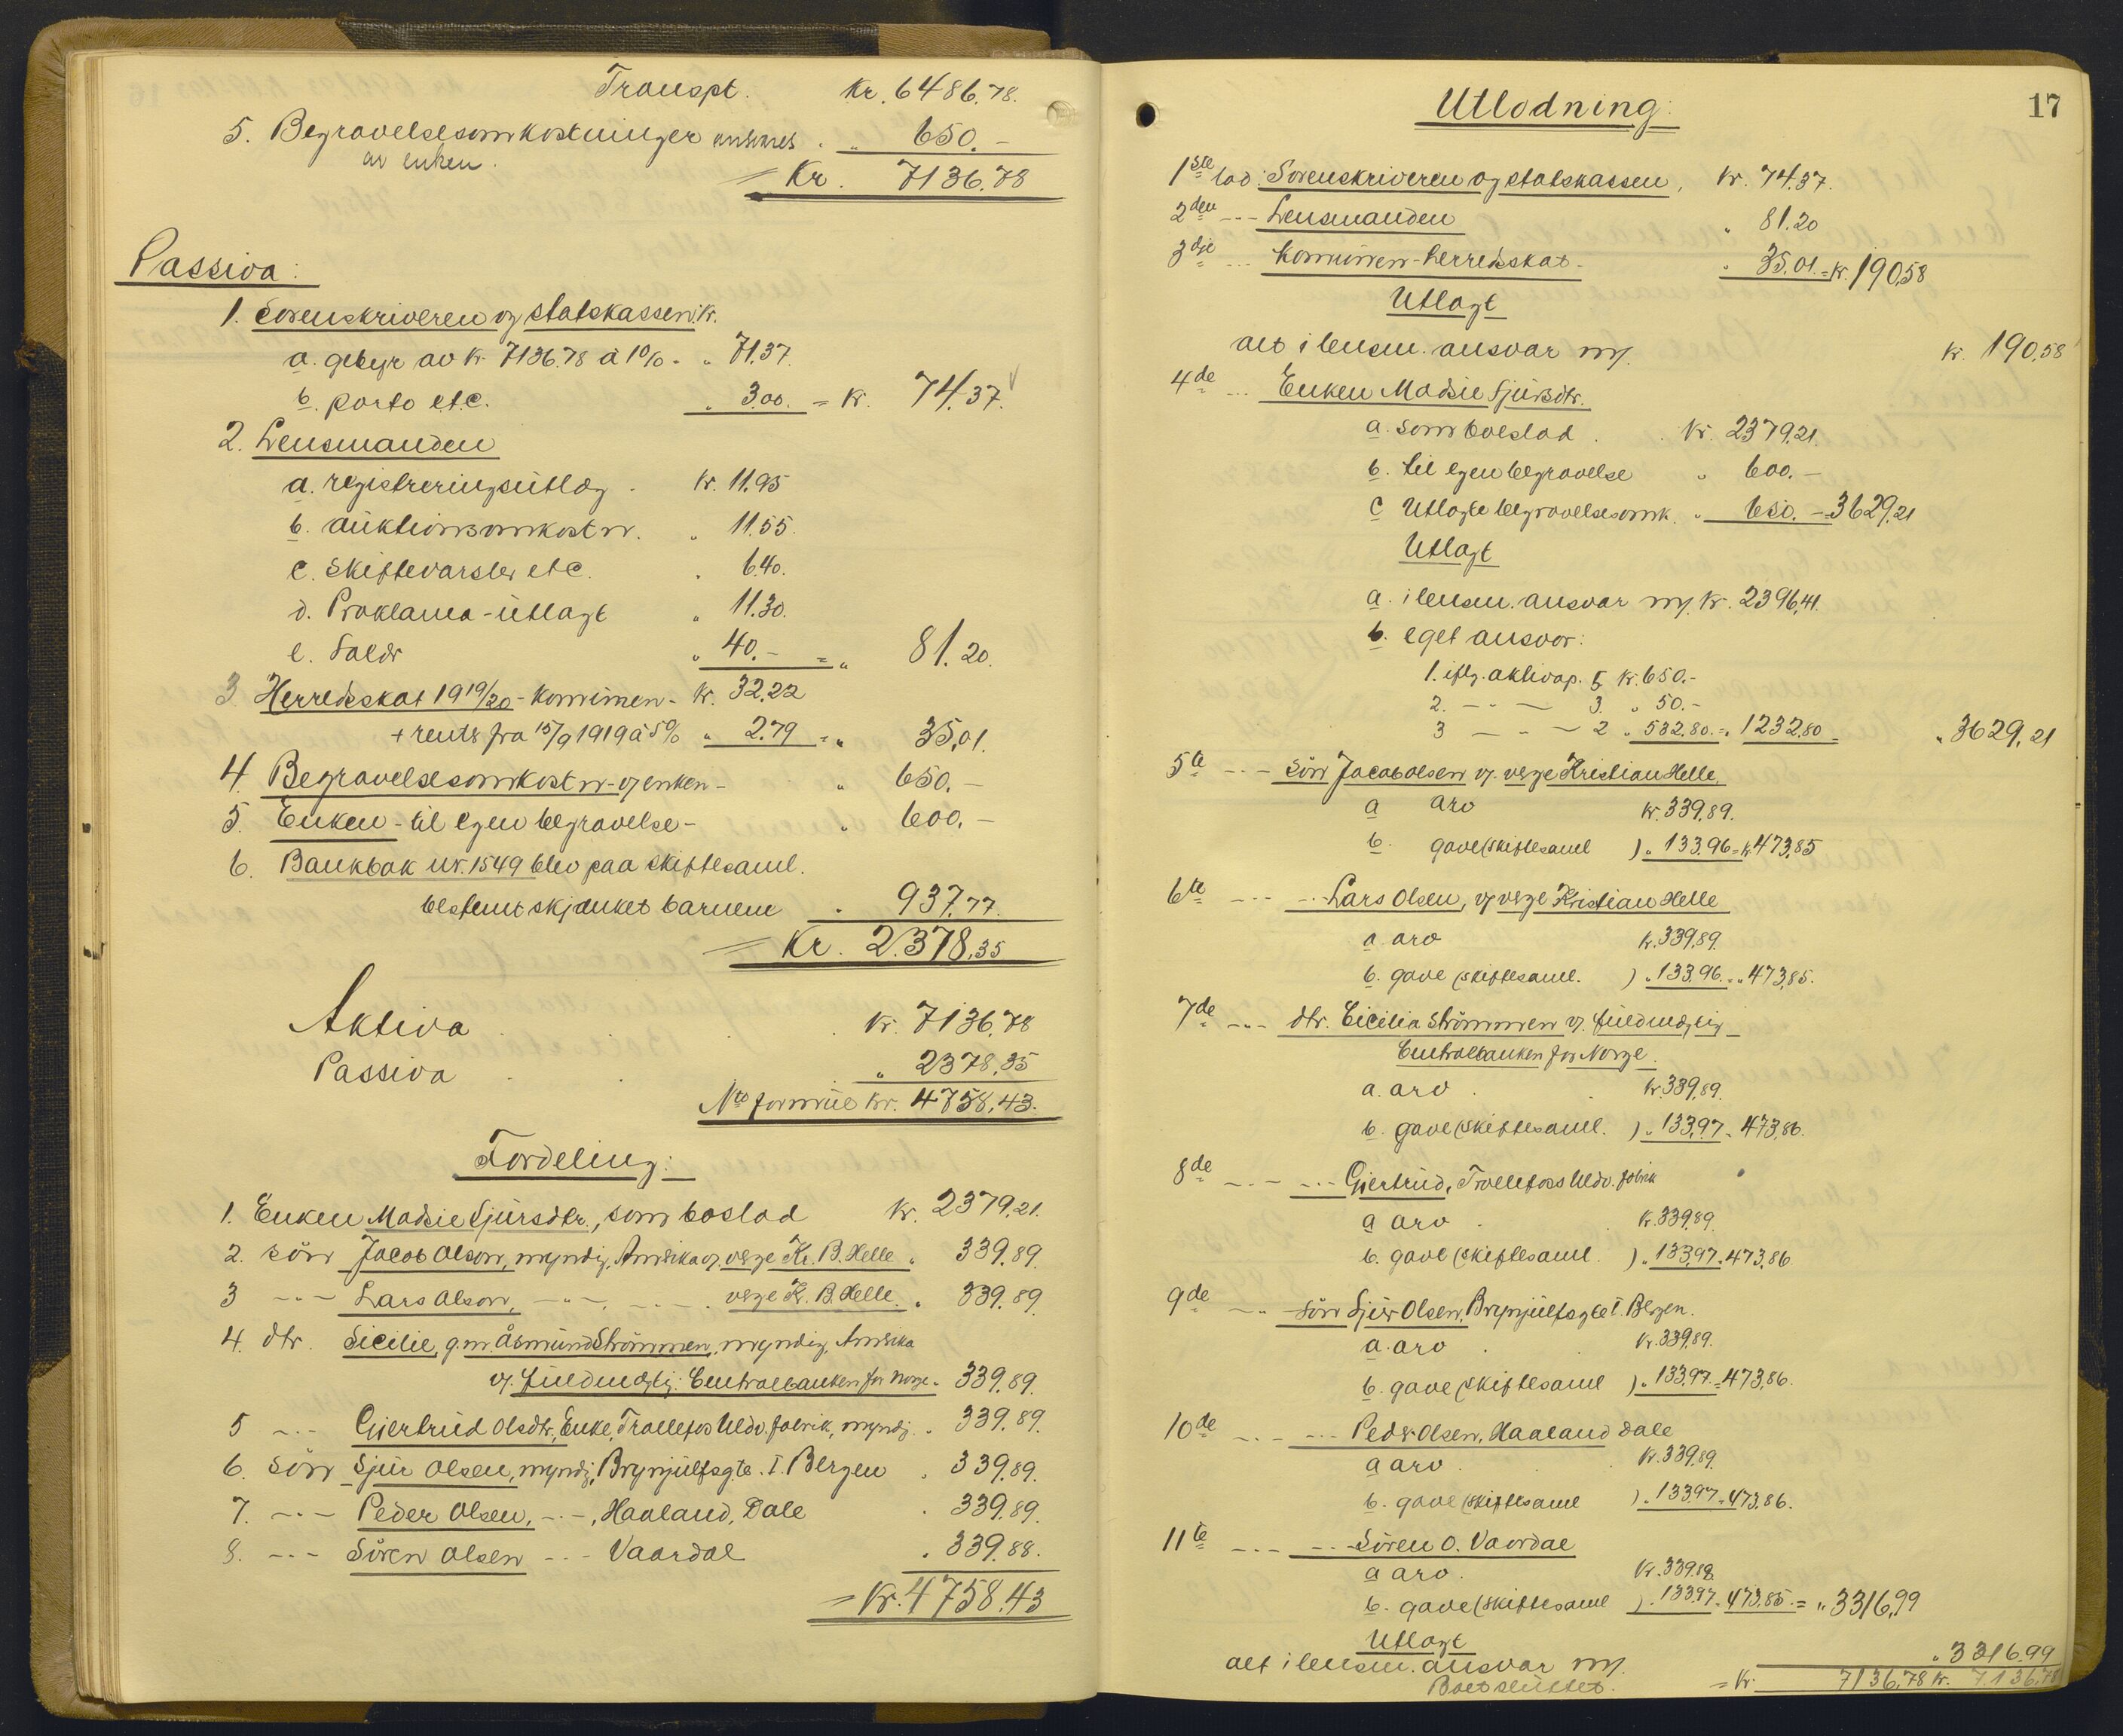 Transpt. Kr. 6486.78.
5. Begravelsesomkostninger anvises . „ 650.-
av enken.
= Kr. 7136.78
Passiva:
1. Sorenskriveren og statskassen. Kr.
a. gebyr av Kr. 7136.78 à 1% - „ 71.37.
b. porto etc. „ 3.00. = Kr. 74.37.
2. Lensmanden
a. registreringsutlæg . Kr. 11.95
b. auktionsomkostn. „ 11.55.
c. Skiftevarsler etc. „ 6.40.
d. Proklama-utlagt „ 11.30.
e. Salær „ 40.- = „ 81.20.
3 Herredsskat 1919/20 - kommunen - Kr. 32.22
+ rente fra 15/9 1919 à 5% „ 2.79 = „ 35.01.
4. Begravelsesomkostn - v/ enken - „ 650.-
5. Enken - til egen begravelse - „ 600.-
6. Bankbok nr. 1549 blev paa skiftesaml.
bestemt skjænket barnene „ 937.77.
= Kr. 2.378.35
Aktiva . . . Kr. 7136.78
Passiva . . „ 2378.35
Nto formue Kr. 4758.43.
Fordeling:
1. Enken Madsie Sjursdtr., som boslod Kr. 2379.21.
2. Sön Jacob Olson, myndig, Amerika v/ verge Kr. B. Helle „ 339.89.
3 -"- Lars Olson, -"-, -"-, verge K. B. Helle. „ 339.89.
4. dtr. Sicilie, g.m. Åsmund Strömmen, myndig, Amerika
v/ fuldmægtig: Centralbanken for Norge. 339.89.
5 -"- Gjertrud Olsdtr, Enke, Trollefos Uldv. fabrik, myndig . 339.89.
6. Sön Sjur Olsen, myndig, Brynjulfsgte. 1. Bergen „ 339.89.
7. -"- Peder Olsen, -"-, Haaland, Dale . 339.89.
8. -"- Sören Olsen -"- Vaardal „ 339.88.
= Kr. 4758.43
Utlodning: 17
1ste lod: Sorenskriveren og statskassen, Kr. 74.37.
2den -"- Lensmanden „ 81.20
3dje -"- Kommunen - herredsskat - „ 35.01. = Kr. 190.58
Utlagt
alt i lensm. ansvar m/ Kr. 190.58
4de -"- Enken Madsie Sjursdtr.
a. som boslod . . Kr. 2379.21.
b. til egen begravelse „ 600.-
c Utlagte begravelsesomk. „ 650. - 3629.21
Utlagt
a. i lensm. ansvar m/ Kr. 2396.41.
b. eget ansvar:
1. iflg. aktivap. 5 Kr. 650.-
2. -"- - 3. „ 50.-
3 -"- - 2 „ 532.80. = „ 1232.80 = „ 3629.21
5te -"- Sön Jacob Olsen v/ verge Kristian Helle.
a arv Kr. 339.89.
b. gave (skiftesaml ) „ 133.96 = Kr 473.85
6te -"- -"- Lars Olsen, v/ verge Kristian Helle
a. arv Kr. 339.89.
b. gave (skiftesaml. ) „ 133.96. = „ 473.85.
7de -"- dtr. Cicilia Strömmen v/ fuldmægtig
Centralbanken for Norge.
a. arv . . Kr. 339.89.
b. gave (skiftesaml. ) „ 133.97 = 473.86.
8de -"- -"- Gjertrud, Trollefoss Uldv. fabrik
a arv . . Kr. 339.89.
b. gave (skiftesaml. ) „ 133.97 = 473.86
9de -"- Sön Sjur Olsen, Brynjulfsgte 1. Bergen.
a. arv . . Kr. 339.89.
b. gave (skiftesaml ) „ 133.97. = 473.86.
10de -"- -"- Peder Olsen, Haaland Dale
a arv . . Kr. 339.89.
b. gave (skiftesaml ) „ 133.97 = 473.86.
11te -"- -"- Sören O. Vaardal
a arv . Kr. 339.88.
b. gave (skiftesaml ) „ 133.97 = 473.85 = „ 3316.99
Utlagt
alt i lensm. ansvar m/. „ 3316.99
Boet sluttet. = Kr. 7136.78 Kr. 7136.78